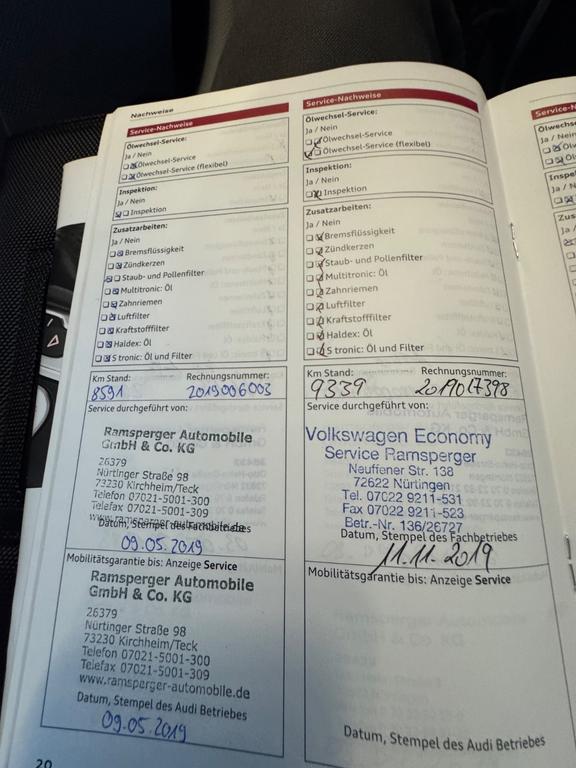 Nachweise
Service-Nachweise
Ölwechsel-Service:
Ja / Nein
Ölwechsel-Service
Ölwechsel-Service (flexibel)
Inspektion:
Ja / Nein
Inspektion
Zusatzarbeiten:
Ja / Nein
Bremsflüssigkeit
Zündkerzen
Staub- und Pollenfilter
Multitronic: Öl
Zahnriemen
Luftfilter
Kraftstofffilter
Haldex: Öl
S tronic: Öl und Filter
Km Stand: Rechnungsnummer:
8591 2019006003
Service durchgeführt von:
Ramsperger Automobile
GmbH & Co. KG
26379
Nürtinger Straße 98
73230 Kirchheim/Teck
Telefon 07021-5001-300
Telefax 07021-5001-309
www.ramsperger-automobile.de
Datum, Stempel des Fachbetriebes
09.05.2019
Mobilitätsgarantie bis: Anzeige Service
Ramsperger Automobile
GmbH & Co. KG
26379
Nürtinger Straße 98
73230 Kirchheim/Teck
Telefon 07021-5001-300
Telefax 07021-5001-309
www.ramsperger-automobile.de
Datum, Stempel des Audi Betriebes
09.05.2019
20
Service-Nachweise
Ölwechsel-Service:
Ja / Nein
Ölwechsel-Service
Ölwechsel-Service (flexibel)
Inspektion:
Ja / Nein
Inspektion
Zusatzarbeiten:
Ja / Nein
Bremsflüssigkeit
Zündkerzen
Staub- und Pollenfilter
Multitronic: Öl
Zahnriemen
Luftfilter
Kraftstofffilter
Haldex: Öl
S tronic: Öl und Filter
Km Stand: Rechnungsnummer:
9339 201907398
Service durchgeführt von:
Volkswagen Economy
Service Ramsperger
Neuffener Str. 138
72622 Nürtingen
Tel. 07022 9211-531
Fax 07022 9211-523
Betr.-Nr. 136/26727
Datum, Stempel des Fachbetriebes
11.11.2019
Mobilitätsgarantie bis: Anzeige Service
Datum, Stempel des Audi Betriebes